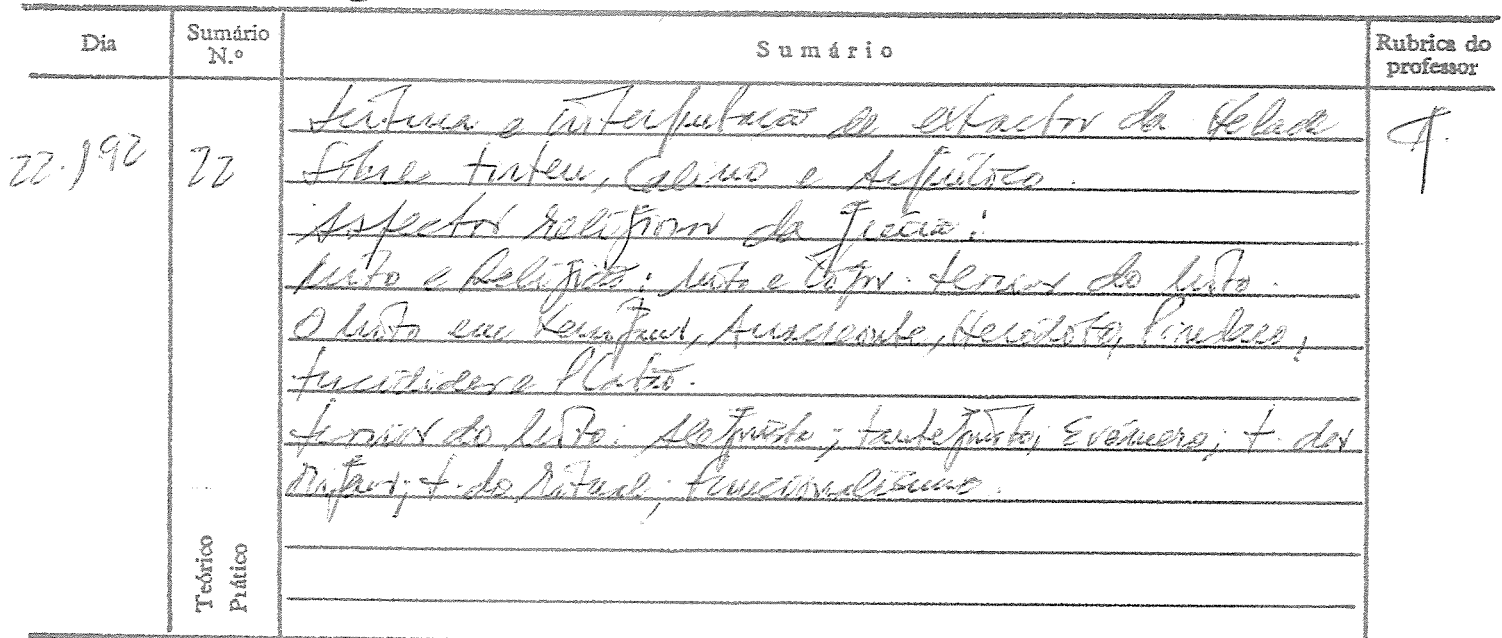 Dia
Sumário N.º
Sumário
Rubrica do professor
22.1.92
22
Leitura e interpretação de extractos da Hélade
sobre Tirteu, Calino e Arquíloco.
Aspectos religiosos da Grécia:
Mito e Religião; Mito e Logos. Teorias do Mito.
O Mito em Xenófanes, Anacreonte, Heródoto, Píndaro,
Tucídides e Platão.
Teorias do Mito: Alegorista; Evémero; t. das
origens; t. do Ritual; funcionalismo.
Teórico
Prático